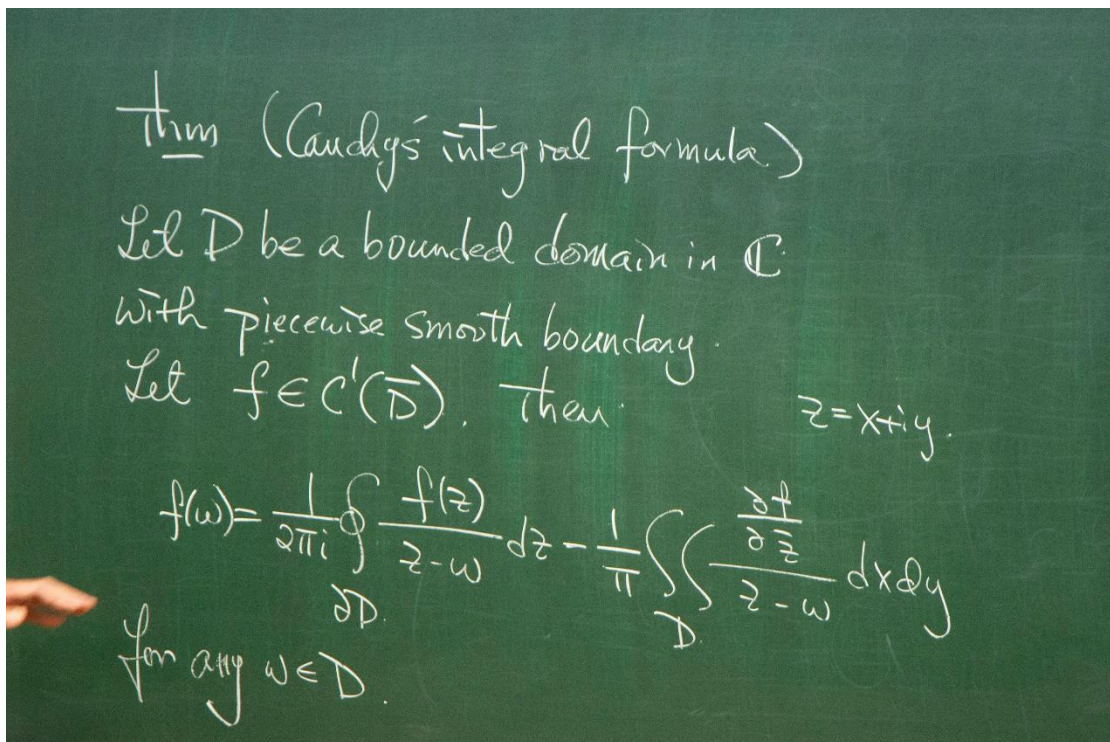 Thm (Cauchy's integral formula)
Let D be a bounded domain in ℂ
with piecewise smooth boundary.
Let f ∈ C¹(D̅). Then
z = x+iy.
f(w) = 1/2πi ∮_∂D f(z)/(z-w) dz - 1/π ∬_D (∂f/∂z̅)/(z-w) dxdy
for any w ∈ D.